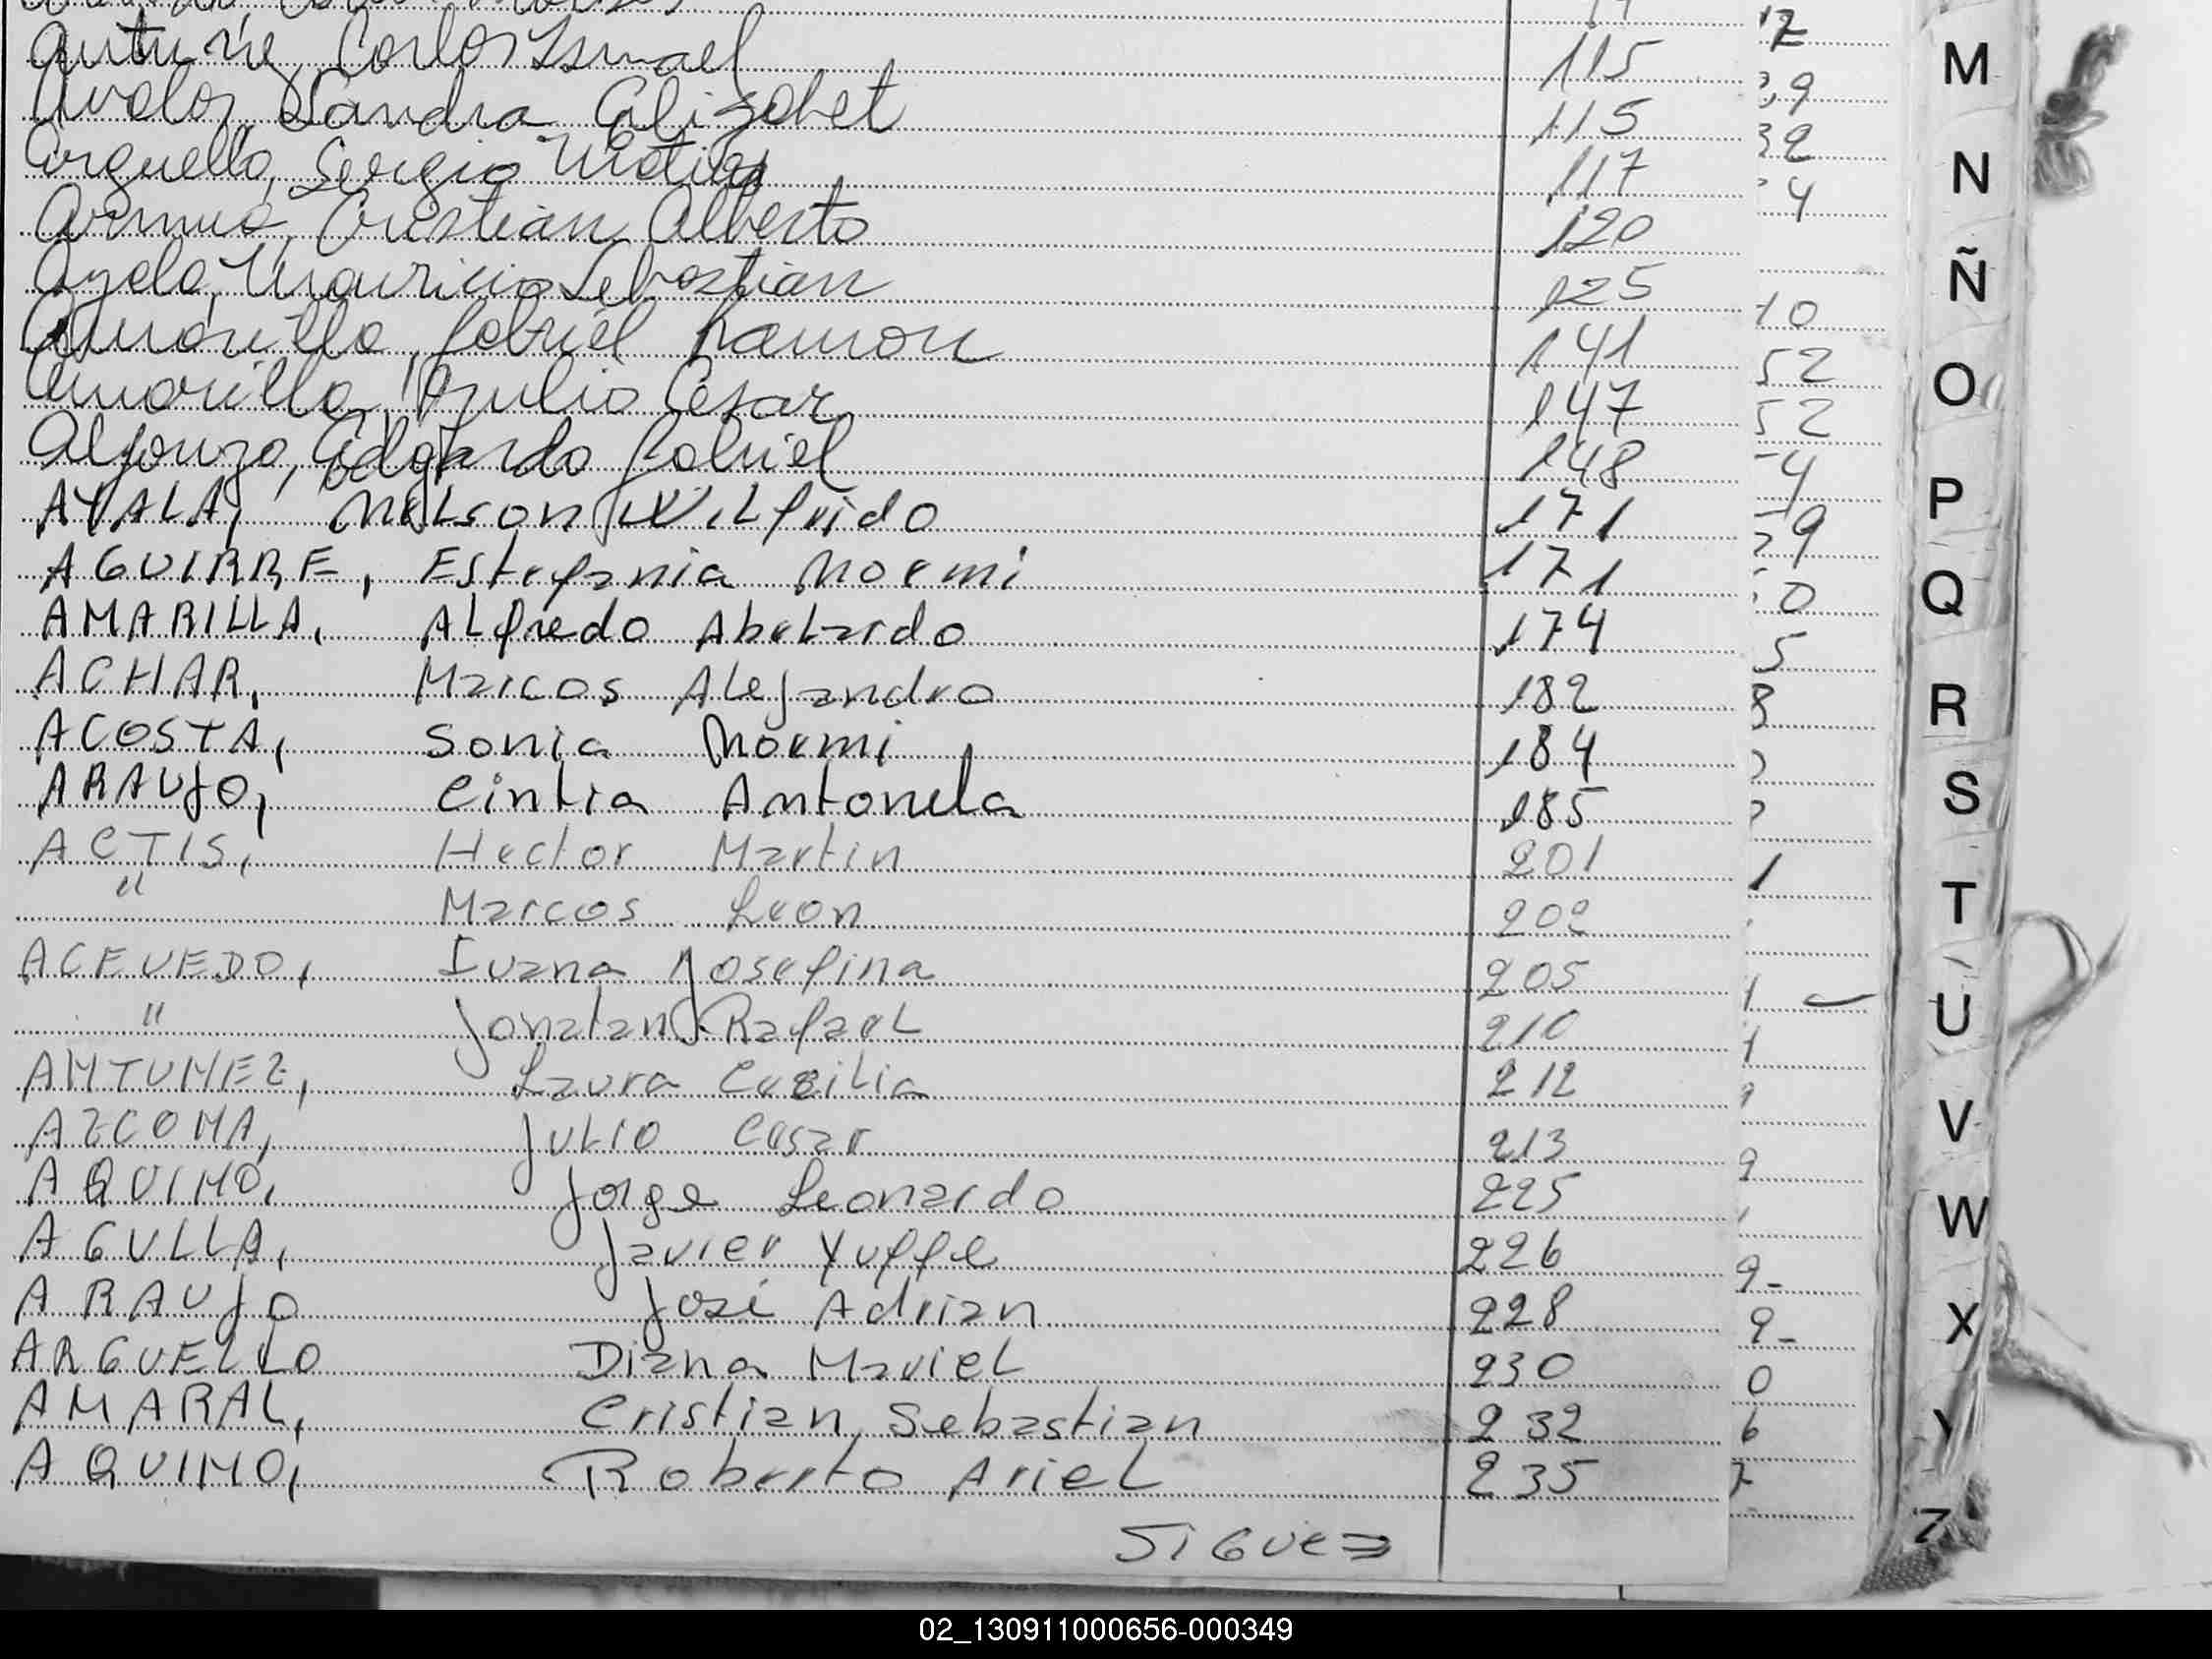 Carlos Ismael 115
Avalos, Sandra Elizabet 115
Arguello, Sergio Matias 117
Armua, Cristian Alberto 120
Ayala, Mauricio Sebastian 125
Amarilla, Gabriel Ramon 141
Amarilla, Julio Cesar 147
Alfonzo, Edgardo Gabriel 148
AYALA, Nelson Wilfrido 171
AGUIRRE, Estefania Noemi 171
AMARILLA, Alfredo Abelardo 174
ACHAR, Marcos Alejandro 182
ACOSTA, Sonia Noemi 184
ARAUJO, Cintia Antonela 185
ACTIS, Hector Martin 201
" Marcos Leon 202
ACEVEDO, Ivana Josefina 205
" Jonatan Rafael 210
ANTUNEZ, Laura Cecilia 212
AZCONA, Julio Cesar 213
AQUINO, Jorge Leonardo 225
AGULLA, Javier Yuffe 226
ARAUJO José Adrian 228
ARGUELLO Diana Mariel 230
AMARAL, Cristian Sebastian 232
AQUINO, Roberto Ariel 235
SIGUE
M
N
Ñ
O
P
Q
R
S
T
U
V
W
X
Y
Z
02_130911000656-000349